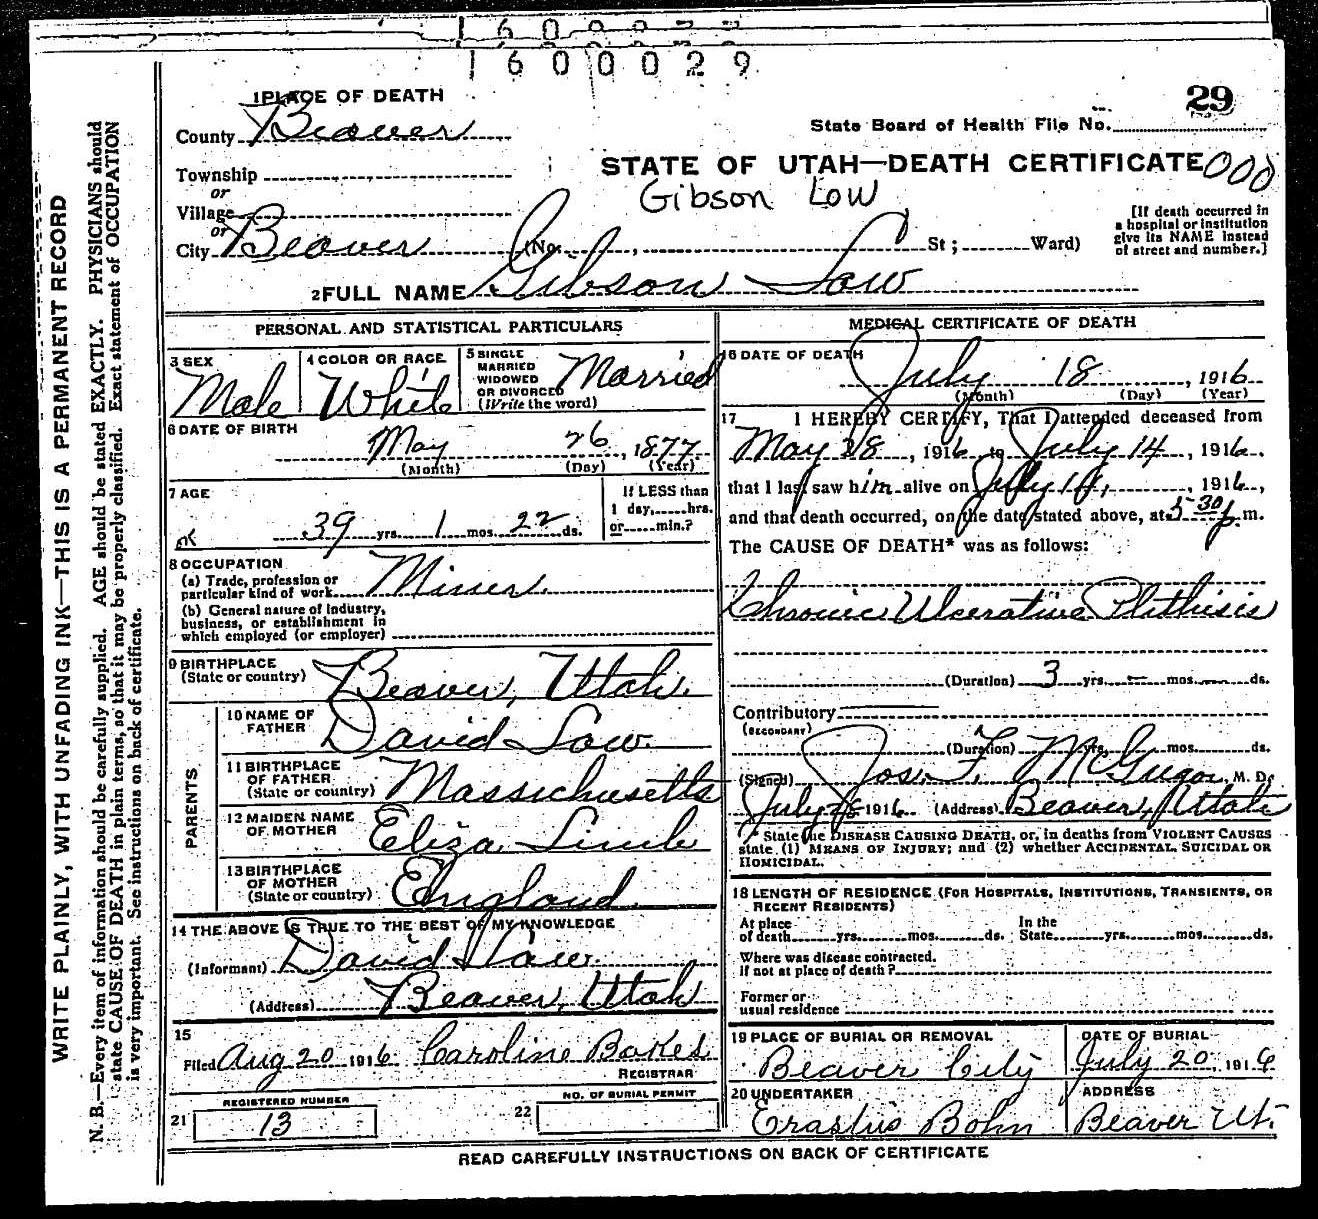 1600029
29
1 PLACE OF DEATH
County Beaver
State Board of Health File No.
Township
or
Village
or
City Beaver (No. , St; Ward)
STATE OF UTAH—DEATH CERTIFICATE 000
Gibson Low
[If death occurred in
a hospital or institution
give its NAME instead
of street and number.]
2 FULL NAME Gibson Low
PERSONAL AND STATISTICAL PARTICULARS
3 SEX
Male
4 COLOR OR RACE
White
5 SINGLE
MARRIED
WIDOWED
OR DIVORCED
(Write the word)
Married
6 DATE OF BIRTH
May 26, 1877
(Month) (Day) (Year)
7 AGE
39 yrs. 1 mos. 22 ds.
If LESS than
1 day, hrs.
or min.?
8 OCCUPATION
(a) Trade, profession or
particular kind of work Miner.
(b) General nature of industry,
business, or establishment in
which employed (or employer)
9 BIRTHPLACE
(State or country) Beaver, Utah.
PARENTS
10 NAME OF
FATHER David Low.
11 BIRTHPLACE
OF FATHER
(State or country) Massachusetts
12 MAIDEN NAME
OF MOTHER Eliza
13 BIRTHPLACE
OF MOTHER
(State or country) England.
14 THE ABOVE IS TRUE TO THE BEST OF MY KNOWLEDGE
(Informant) David Low.
(Address) Beaver, Utah
15
Filed Aug 20 1916 Caroline Bakes
REGISTRAR
REGISTERED NUMBER
21 13
NO. OF BURIAL PERMIT
22
MEDICAL CERTIFICATE OF DEATH
16 DATE OF DEATH
July 18, 1916
(Month) (Day) (Year)
17 I HEREBY CERTIFY, That I attended deceased from
May 18, 1916, to July 14, 1916.
that I last saw him alive on July , 1916,
and that death occurred, on the date stated above, at 5-30 p.m.
The CAUSE OF DEATH* was as follows:
Chronic Ulcerative Phthisis
(Duration) 3 yrs. — mos. — ds.
Contributory
(SECONDARY)
(Duration) yrs. mos. ds.
(Signed) Jos. F. McGregor, M. D.
July 1916 (Address) Beaver, Utah
*State the DISEASE CAUSING DEATH, or, in deaths from VIOLENT CAUSES
state (1) MEANS OF INJURY; and (2) whether ACCIDENTAL, SUICIDAL OR
HOMICIDAL.
18 LENGTH OF RESIDENCE (FOR HOSPITALS, INSTITUTIONS, TRANSIENTS, OR
RECENT RESIDENTS)
At place
of death yrs. mos. ds.
In the
State yrs. mos. ds.
Where was disease contracted,
if not at place of death?
Former or
usual residence
19 PLACE OF BURIAL OR REMOVAL
Beaver City
DATE OF BURIAL
July 20, 1916
20 UNDERTAKER
Erastus Bohn
ADDRESS
Beaver Ut.
READ CAREFULLY INSTRUCTIONS ON BACK OF CERTIFICATE
WRITE PLAINLY, WITH UNFADING INK—THIS IS A PERMANENT RECORD
N. B.—Every item of information should be carefully supplied. AGE should be stated EXACTLY. PHYSICIANS should
state CAUSE OF DEATH in plain terms, so that it may be properly classified. Exact statement of OCCUPATION
is very important. See instructions on back of certificate.